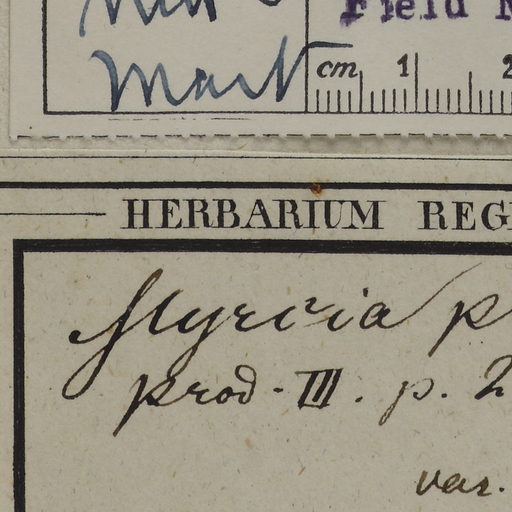 Field
Mart
cm 1 2
HERBARIUM REG
Myrcia p
prod. III. p. 2
var.